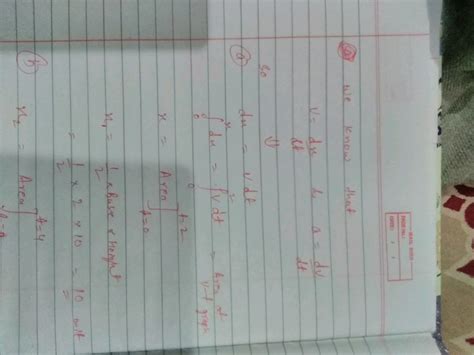 We know that
v = dx/dt & a = dv/dt
so
(a) dx = v dt
∫₀ˣ dx = ∫₀² v dt = Area of v-t graph
x = Area]t=0 t=2
x₁ = 1/2 × Base × Height
= 1/2 × 2 × 10 = 10 unit
(b) x₂ = Area] t=4